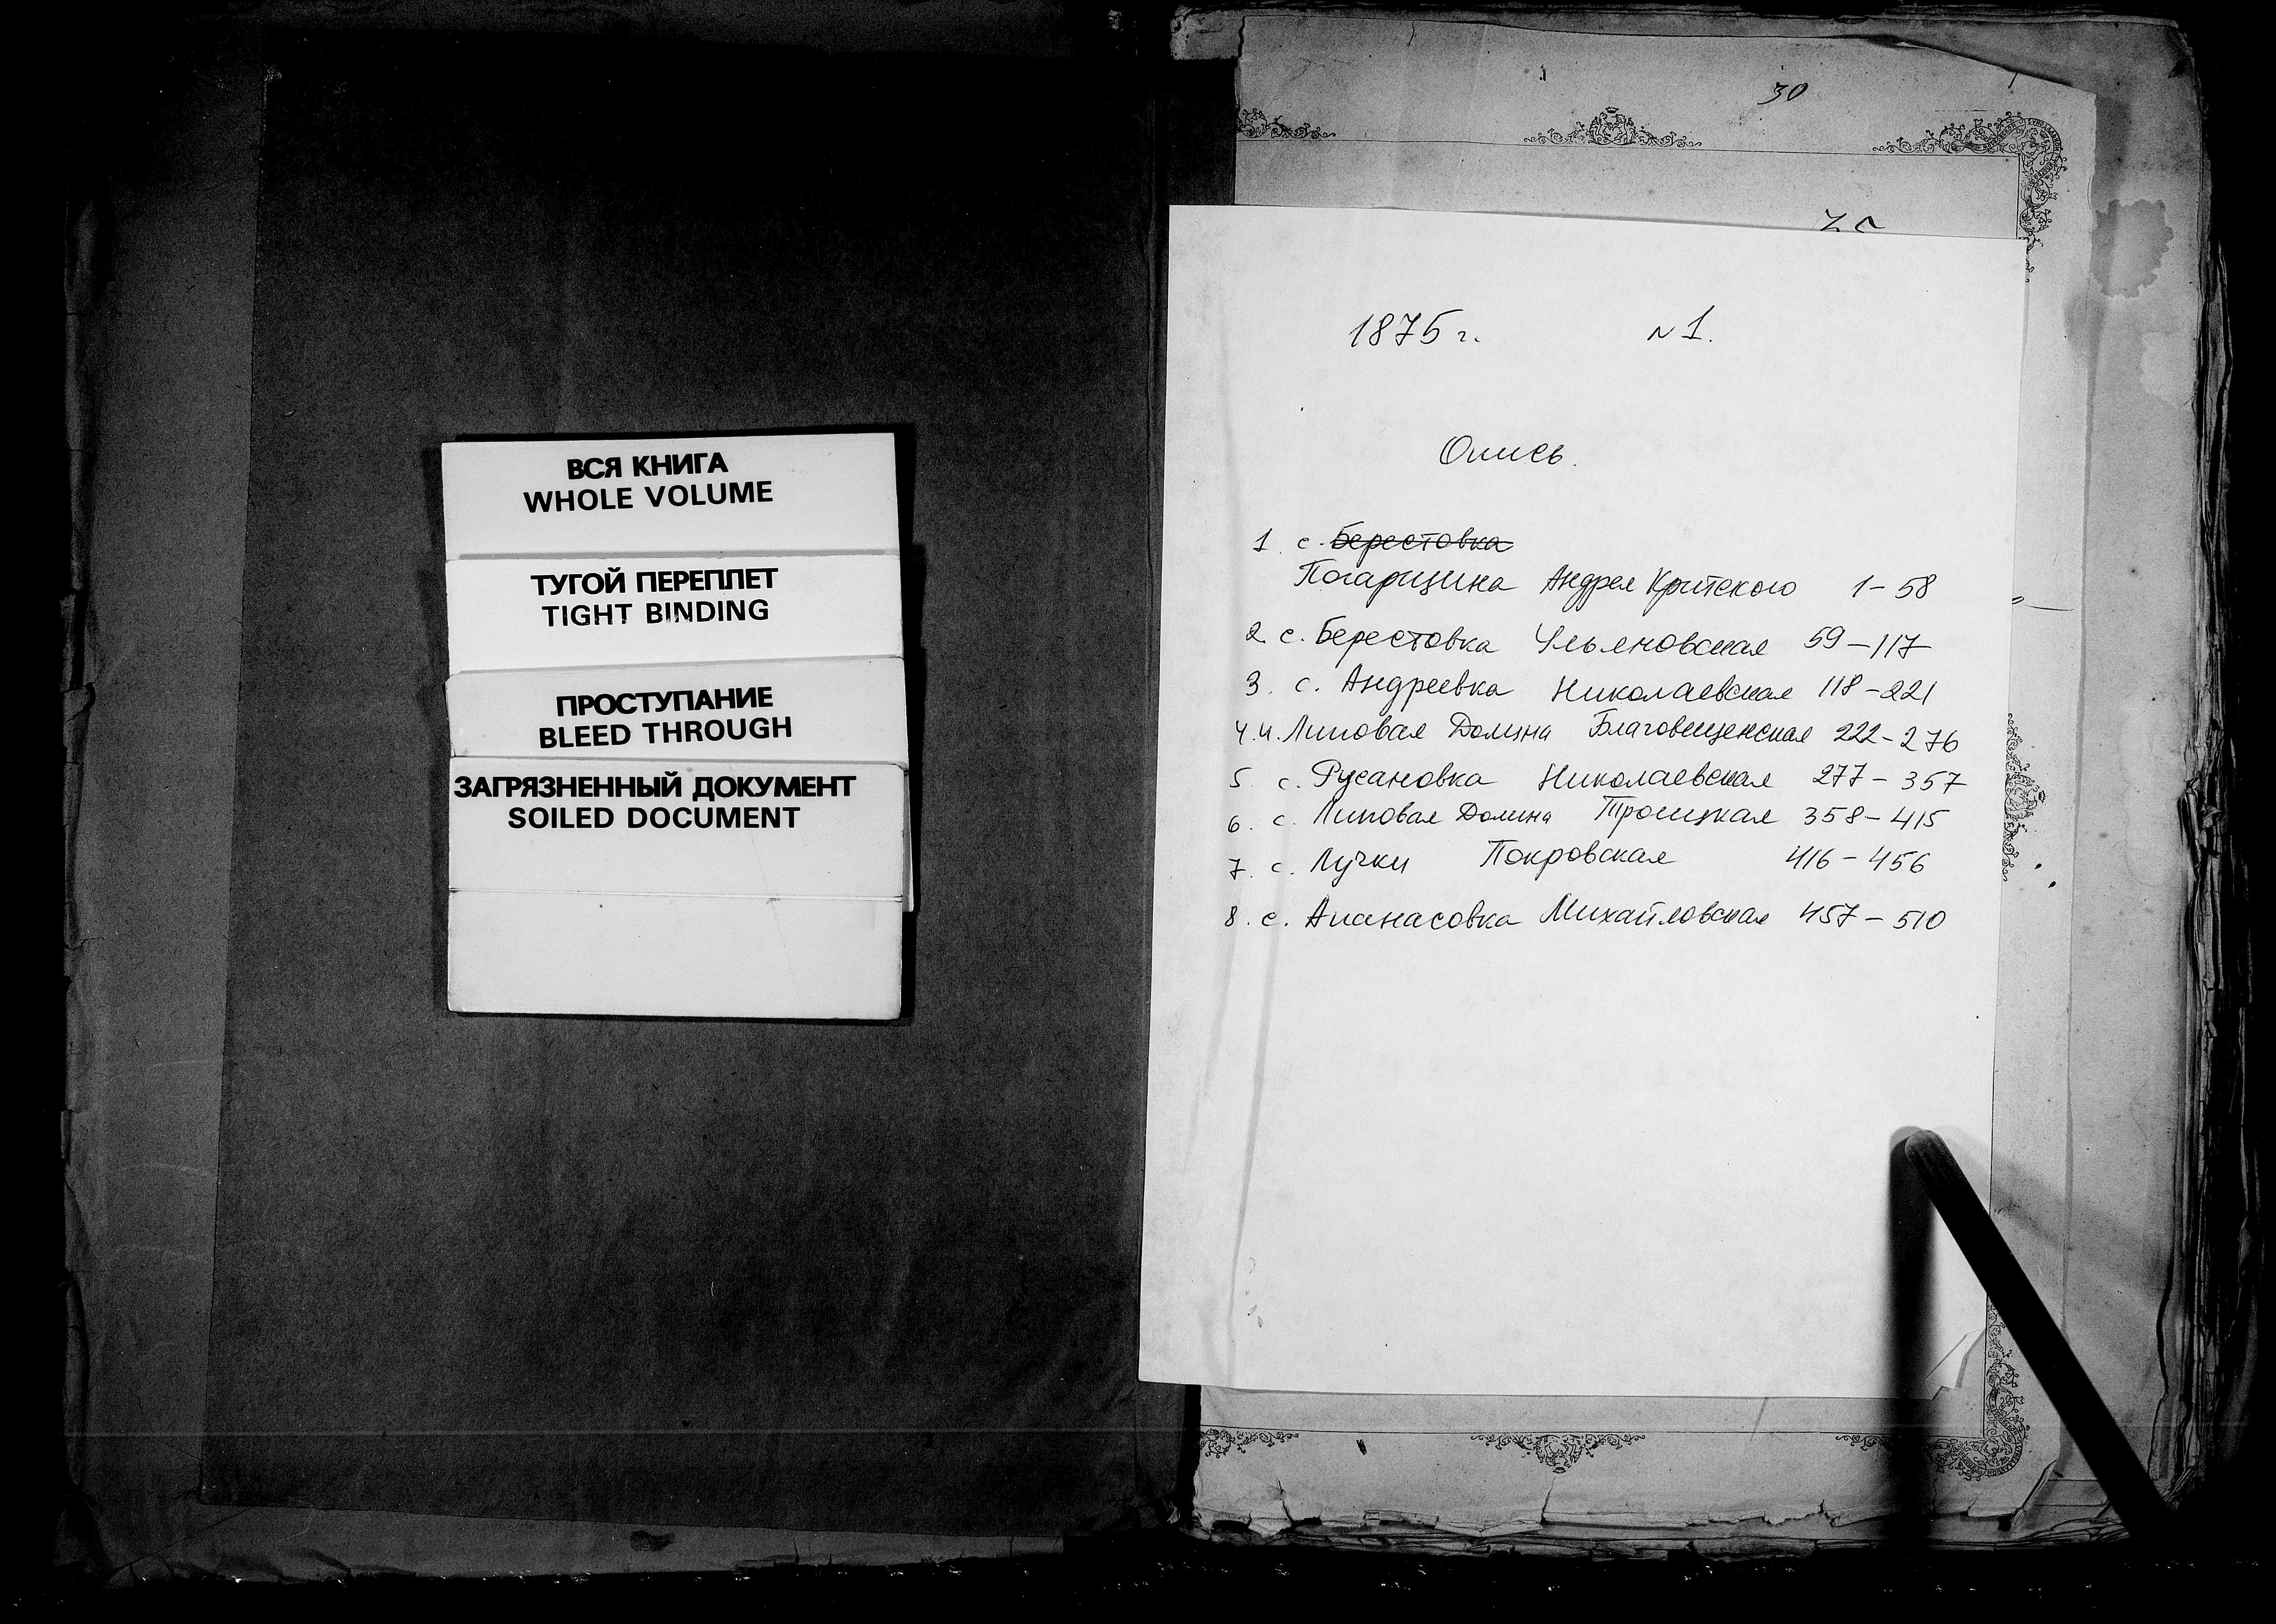 ВСЯ КНИГА
WHOLE VOLUME
ТУГОЙ ПЕРЕПЛЕТ
TIGHT BINDING
ПРОСТУПАНИЕ
BLEED THROUGH
ЗАГРЯЗНЕННЫЙ ДОКУМЕНТ
SOILED DOCUMENT
30
1875 г. N1.
Опись.
1. с. Берестовка
Погарщина Андрея Критского 1-58
2 с. Берестовка Ульяновская 59-117
3. с. Андреевка Николаевская 118-221
4. м. Липовая Долина Благовещенская 222-276
5. с. Русановка Николаевская 277-357
6. с. Липовая Долина Троицкая 358-415
7. с. Лучки Покровская 416-456
8. с. Апанасовка Михайловская 457-510